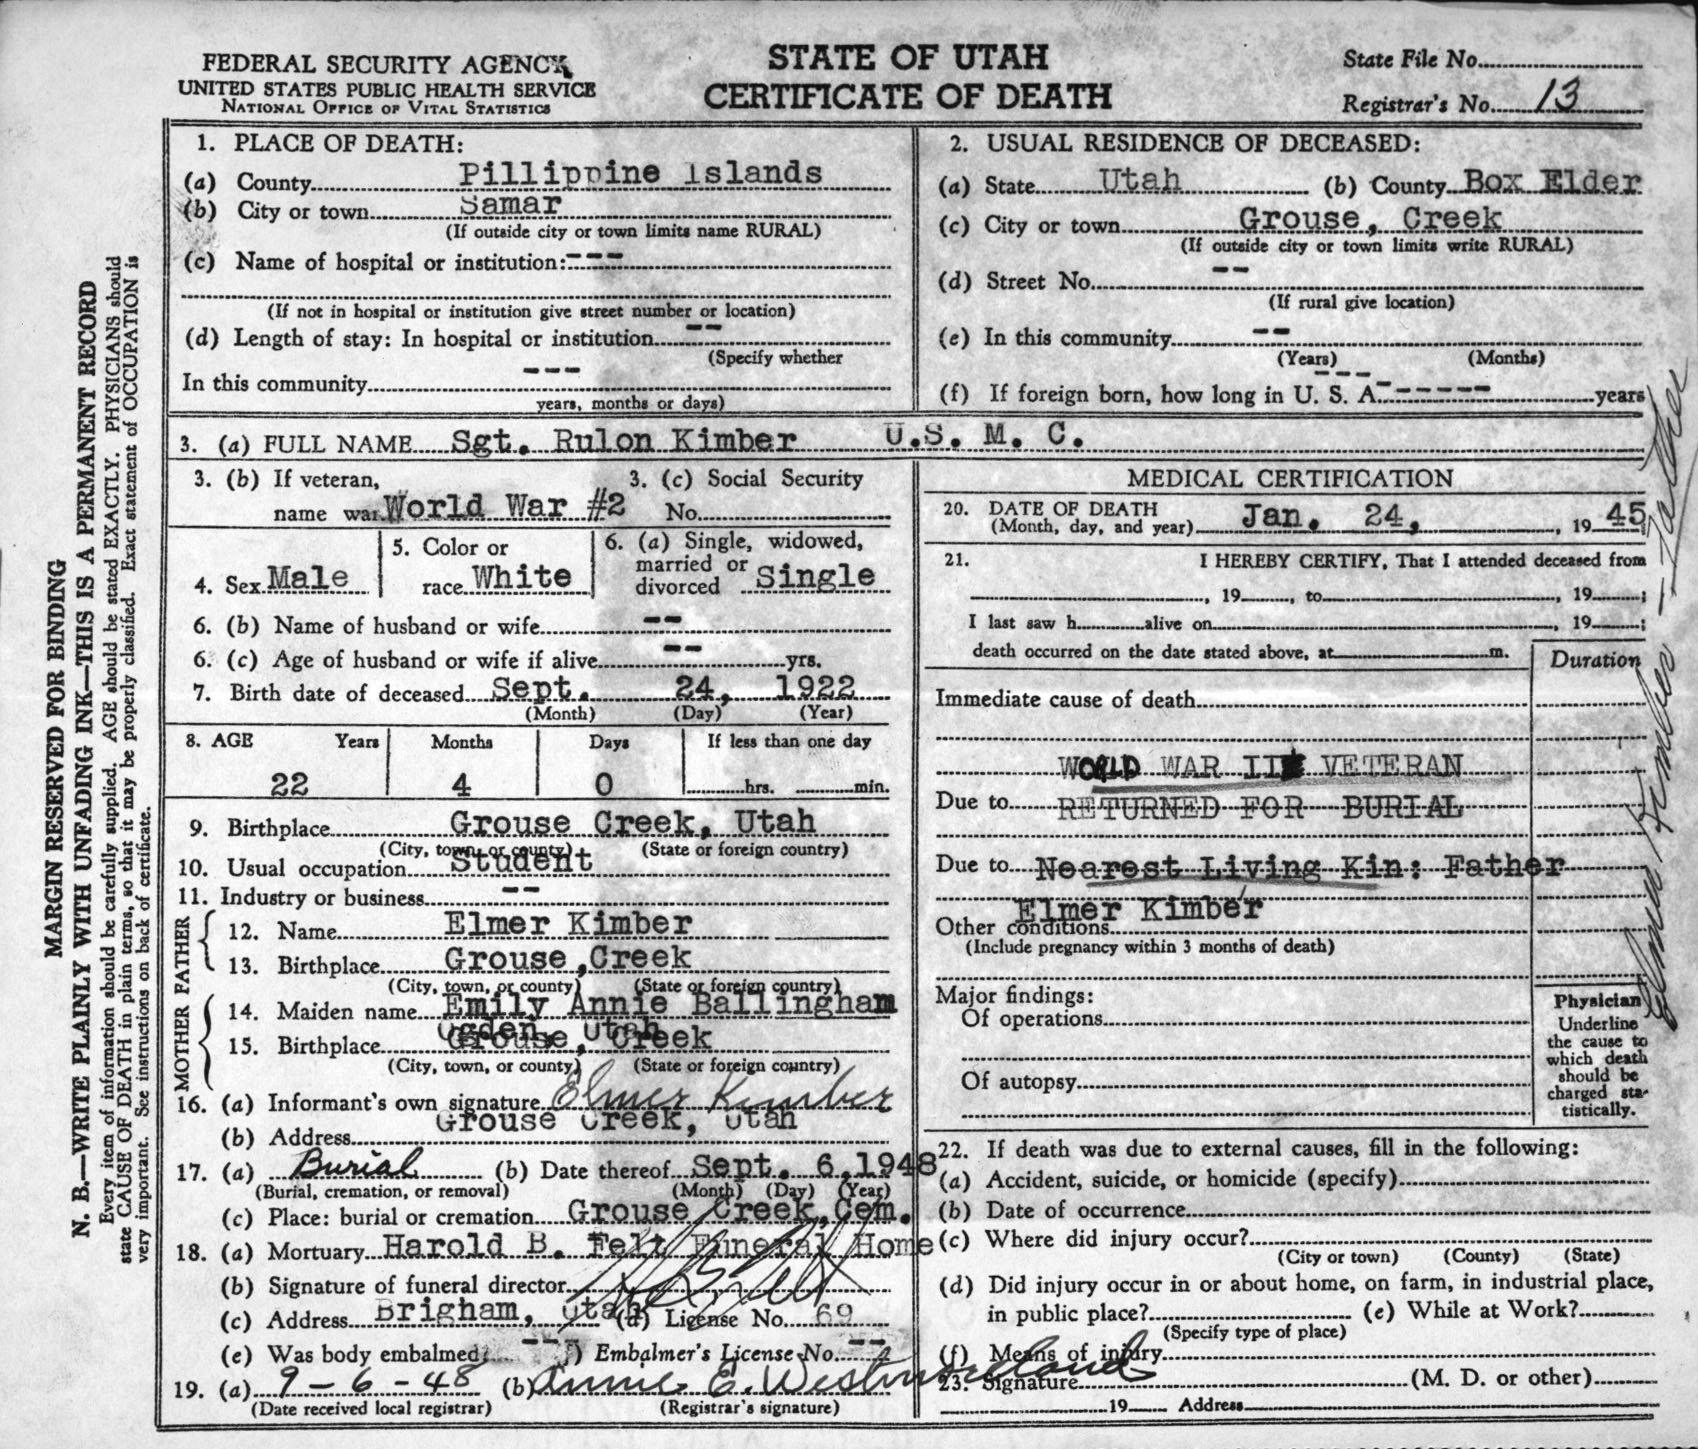 FEDERAL SECURITY AGENCY
UNITED STATES PUBLIC HEALTH SERVICE
NATIONAL OFFICE OF VITAL STATISTICS
STATE OF UTAH
CERTIFICATE OF DEATH
State File No.
Registrar's No. 13
MARGIN RESERVED FOR BINDING
N. B.—WRITE PLAINLY WITH UNFADING INK—THIS IS A PERMANENT RECORD
Every item of information should be carefully supplied. AGE should be stated EXACTLY. PHYSICIANS should
state CAUSE OF DEATH in plain terms, so that it may be properly classified. Exact statement of OCCUPATION is
very important. See instructions on back of certificate.
1. PLACE OF DEATH:
(a) County Pillippine Islands
(b) City or town Samar
(If outside city or town limits name RURAL)
(c) Name of hospital or institution: ---
(If not in hospital or institution give street number or location)
(d) Length of stay: In hospital or institution --
(Specify whether
In this community ---
years, months or days)
2. USUAL RESIDENCE OF DECEASED:
(a) State Utah (b) County Box Elder
(c) City or town Grouse, Creek
(If outside city or town limits write RURAL)
(d) Street No. --
(If rural give location)
(e) In this community --
(Years) (Months)
(f) If foreign born, how long in U. S. A. ------ years
3. (a) FULL NAME Sgt. Rulon Kimber U.S. M. C.
3. (b) If veteran, name war World War #2
3. (c) Social Security No.
4. Sex Male
5. Color or race White
6. (a) Single, widowed, married or divorced Single
6. (b) Name of husband or wife --
6. (c) Age of husband or wife if alive -- yrs.
7. Birth date of deceased Sept. 24, 1922
(Month) (Day) (Year)
8. AGE Years Months Days If less than one day
22 4 0 hrs. min.
9. Birthplace Grouse Creek, Utah
(City, town, or county) (State or foreign country)
10. Usual occupation Student
11. Industry or business --
FATHER
12. Name Elmer Kimber
13. Birthplace Grouse, Creek
(City, town, or county) (State or foreign country)
MOTHER
14. Maiden name Emily Annie Ballingham
Ogden, Utah
15. Birthplace Grouse, Creek
(City, town, or county) (State or foreign country)
16. (a) Informant's own signature Elmer Kimber
(b) Address Grouse Creek, Utah
17. (a) Burial (b) Date thereof Sept. 6, 1948
(Burial, cremation, or removal) (Month) (Day) (Year)
(c) Place: burial or cremation Grouse Creek, Cem.
18. (a) Mortuary Harold B. Felt Funeral Home
(b) Signature of funeral director
(c) Address Brigham, Utah (d) License No. 69
(e) Was body embalmed? -- (f) Embalmer's License No. --
19. (a) 9-6-48 (b) Annie E. Westmoreland
(Date received local registrar) (Registrar's signature)
MEDICAL CERTIFICATION
20. DATE OF DEATH
(Month, day, and year) Jan. 24, 1945
21. I HEREBY CERTIFY, That I attended deceased from
, 19 , to , 19 ;
I last saw h alive on , 19 ;
death occurred on the date stated above, at m.
Duration
Immediate cause of death
WORLD WAR II VETERAN
Due to RETURNED FOR BURIAL
Due to Nearest Living Kin: Father
Elmer Kimber
Other conditions
(Include pregnancy within 3 months of death)
Major findings:
Of operations
Of autopsy
Physician
Underline
the cause to
which death
should be
charged sta-
tistically.
22. If death was due to external causes, fill in the following:
(a) Accident, suicide, or homicide (specify)
(b) Date of occurrence
(c) Where did injury occur?
(City or town) (County) (State)
(d) Did injury occur in or about home, on farm, in industrial place,
in public place? (e) While at Work?
(Specify type of place)
(f) Means of injury
23. Signature (M. D. or other)
19 Address
Elmer Kimber - Father